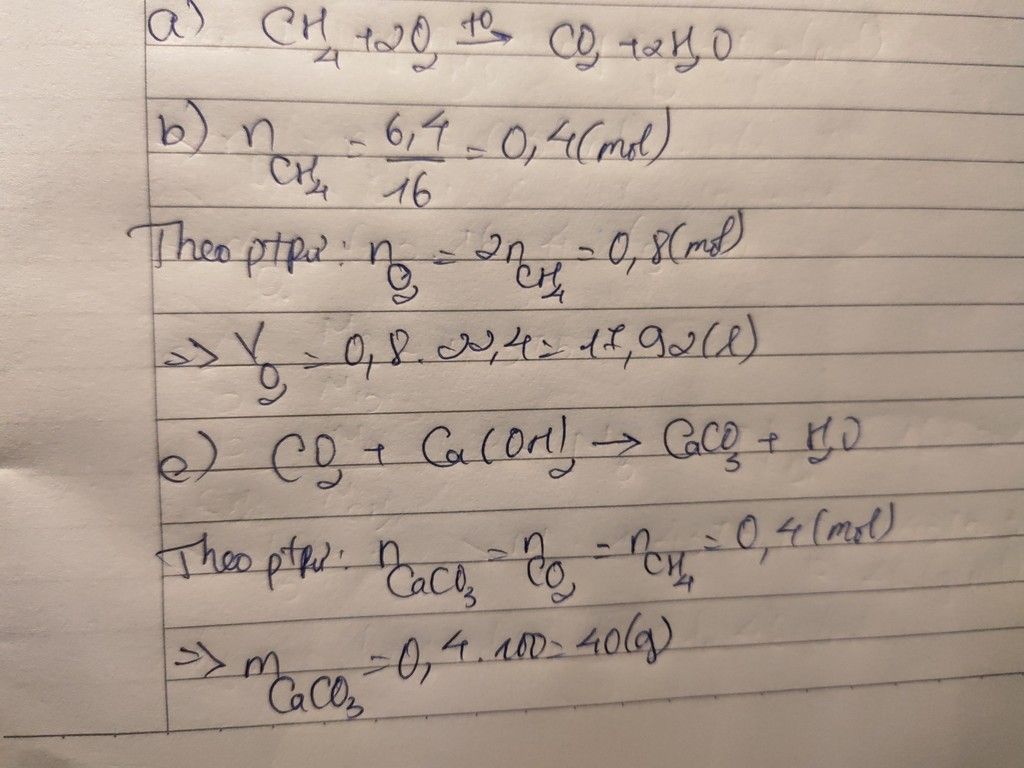 a) CH₄ + 2O₂ →(t⁰) CO₂ + 2H₂O
b) n_CH₄ = 6,4/16 = 0,4 (mol)
Theo ptpư: n_O₂ = 2n_CH₄ = 0,8 (mol)
=> V_O₂ = 0,8 . 22,4 = 17,92 (l)
c) CO₂ + Ca(OH)₂ → CaCO₃ + H₂O
Theo ptpư: n_CaCO₃ = n_CO₂ = n_CH₄ = 0,4 (mol)
=> m_CaCO₃ = 0,4 . 100 = 40 (g)